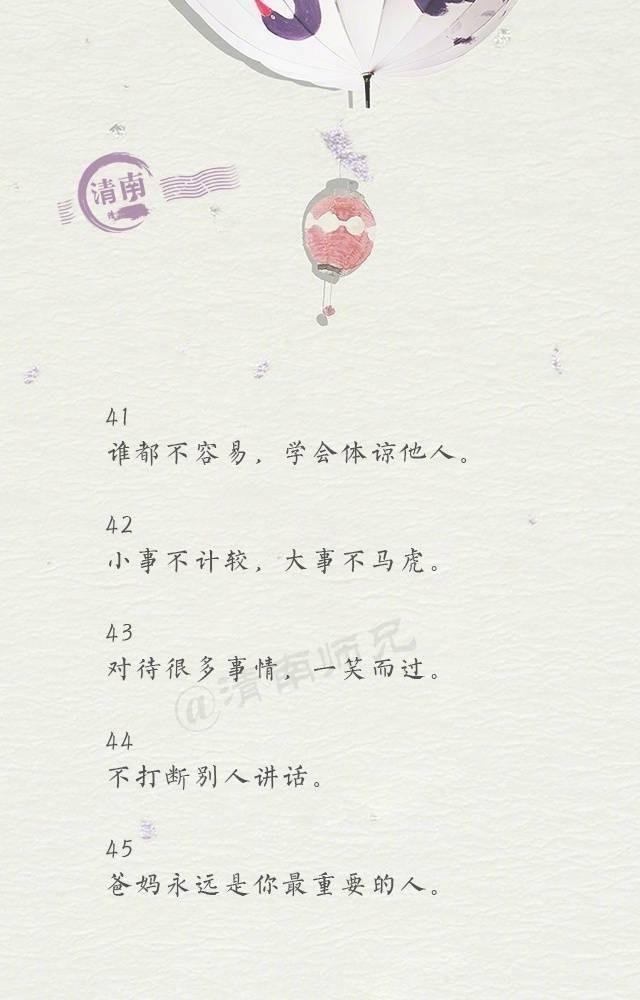 清南
41
谁都不容易，学会体谅他人。
42
小事不计较，大事不马虎。
43
对待很多事情，一笑而过。
@清南师兄
44
不打断别人讲话。
45
爸妈永远是你最重要的人。